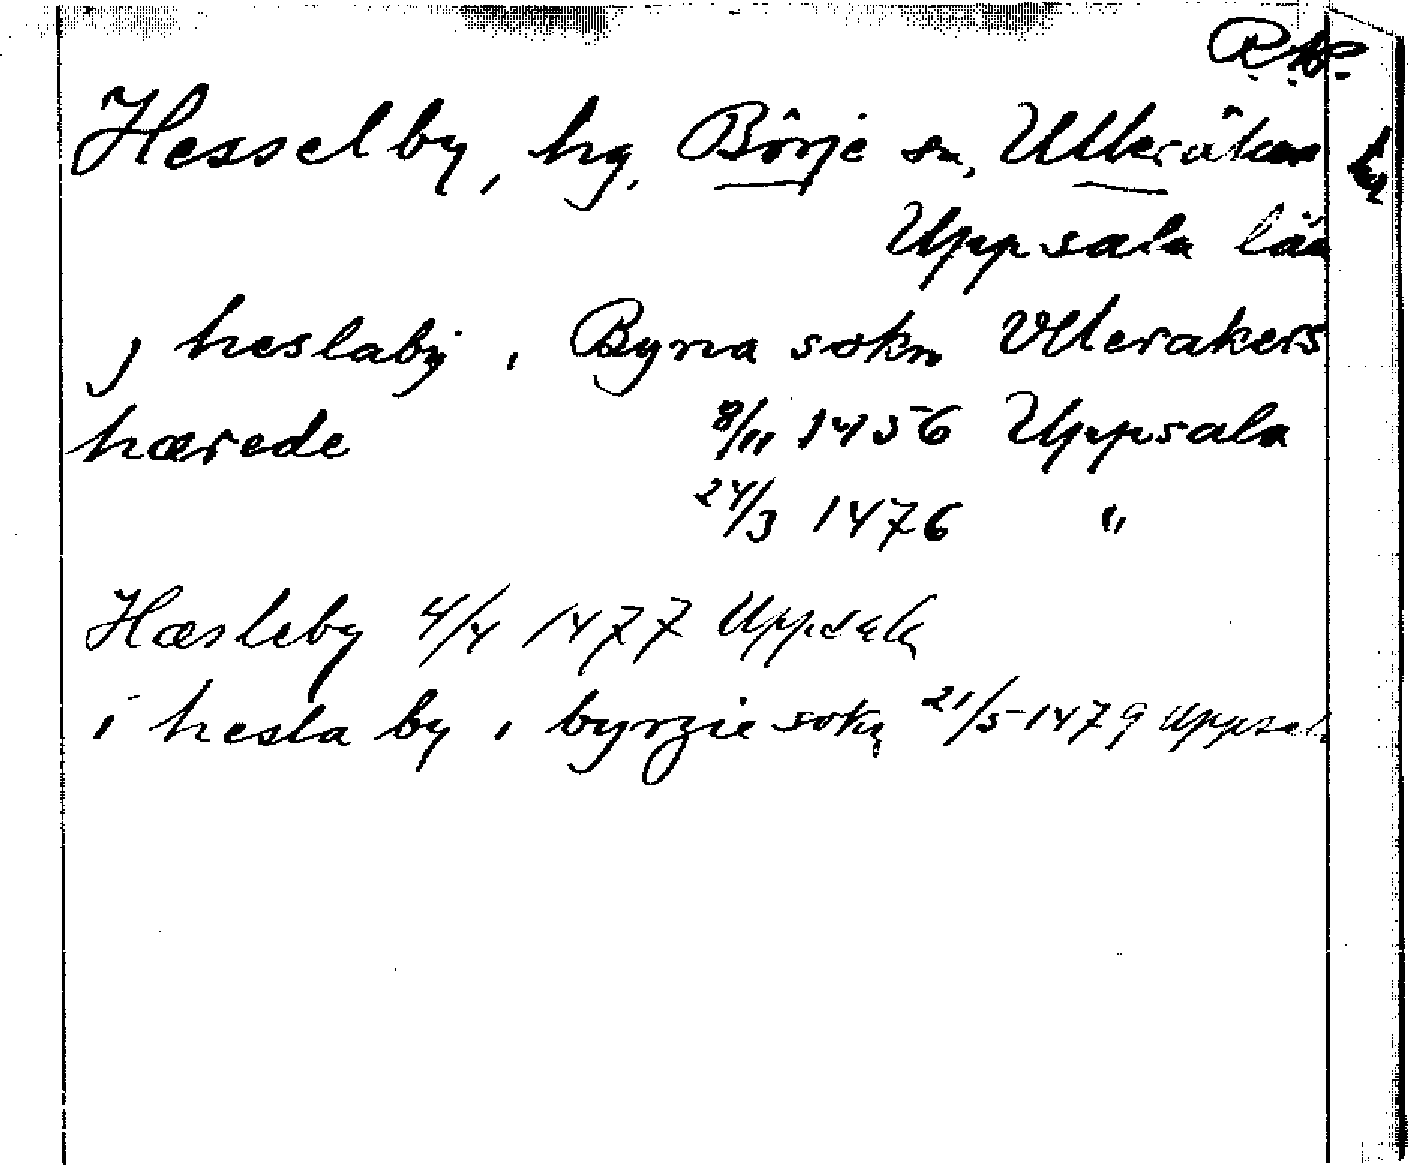 R.Ap.
Hesselby, hg, Börje sn, Ulleråkers hd
Uppsala län
j heslaby i Byrna sokn Vllerakers
hærede 8/11 1456 Uppsala
24/3 1476 "
Hæsleby 4/4 1477 Uppsala
i hesla by i byrzie sokn 21/5 1479 Uppsala